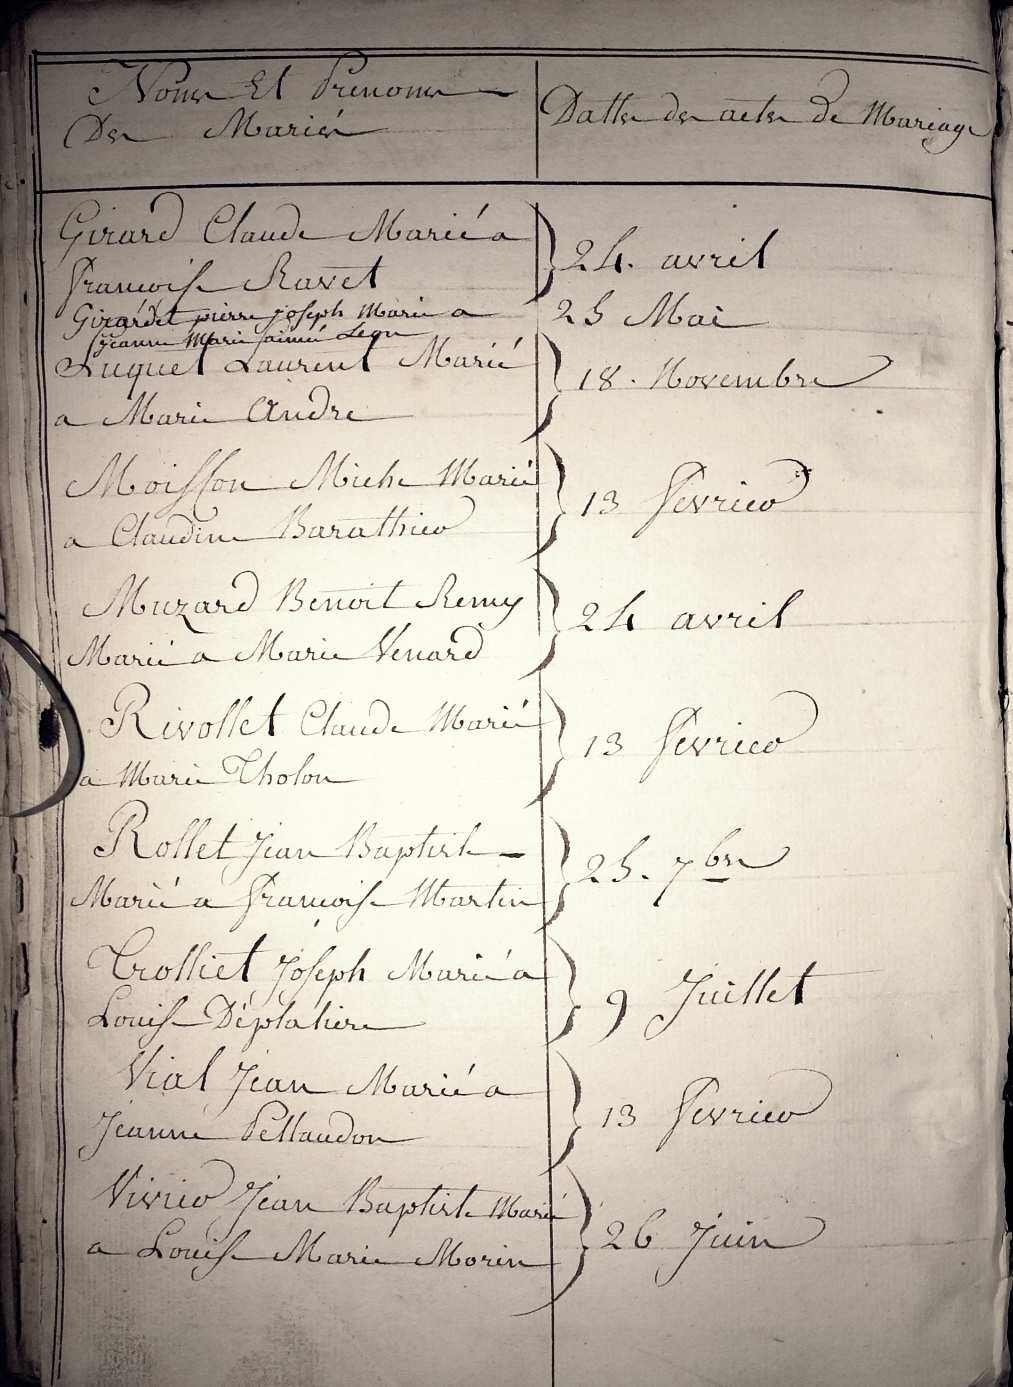 Noms Et Prenoms
Des Mariés
Dattes des actes de Mariage
Girard Claude Marié a
françoise Ravet
24. avril
Girardet pierre joseph Marie a
jeanne Marie aimée Leon
25 Mai
Luquet Laurent Marié
a Marie André
18. Novembre
Moisson Michel Marié
a Claudine Barathier
13 fevrier
Muzard Benoit Remy
Marié a Marie Venard
24 avril
Rivollet Claude Marié
a Marie Tholon
13 fevrier
Rollet Jean Baptiste
Marié a françoise Martin
25. 7bre
Trolliet Joseph Marié a
Louise Déplatiere
9 Juillet
Vial Jean Marié a
Jeanne Pellaudon
13 fevrier
Vivier Jean Baptiste Marié
a Louise Marie Morin
26 Juin